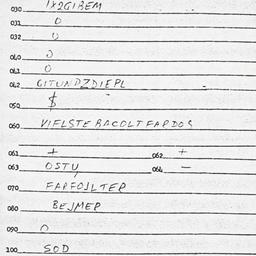 030 1X2GIBEM
031 0
032 0
040 0
041 0
042 GITUNDZDIEPL
050 $
060 VIFLSTE RACOLT FARDOS
061 + 062 +
063 OSTU 064 -
070 FARFOILTER
080 BEJMER
090 0
100 SOD